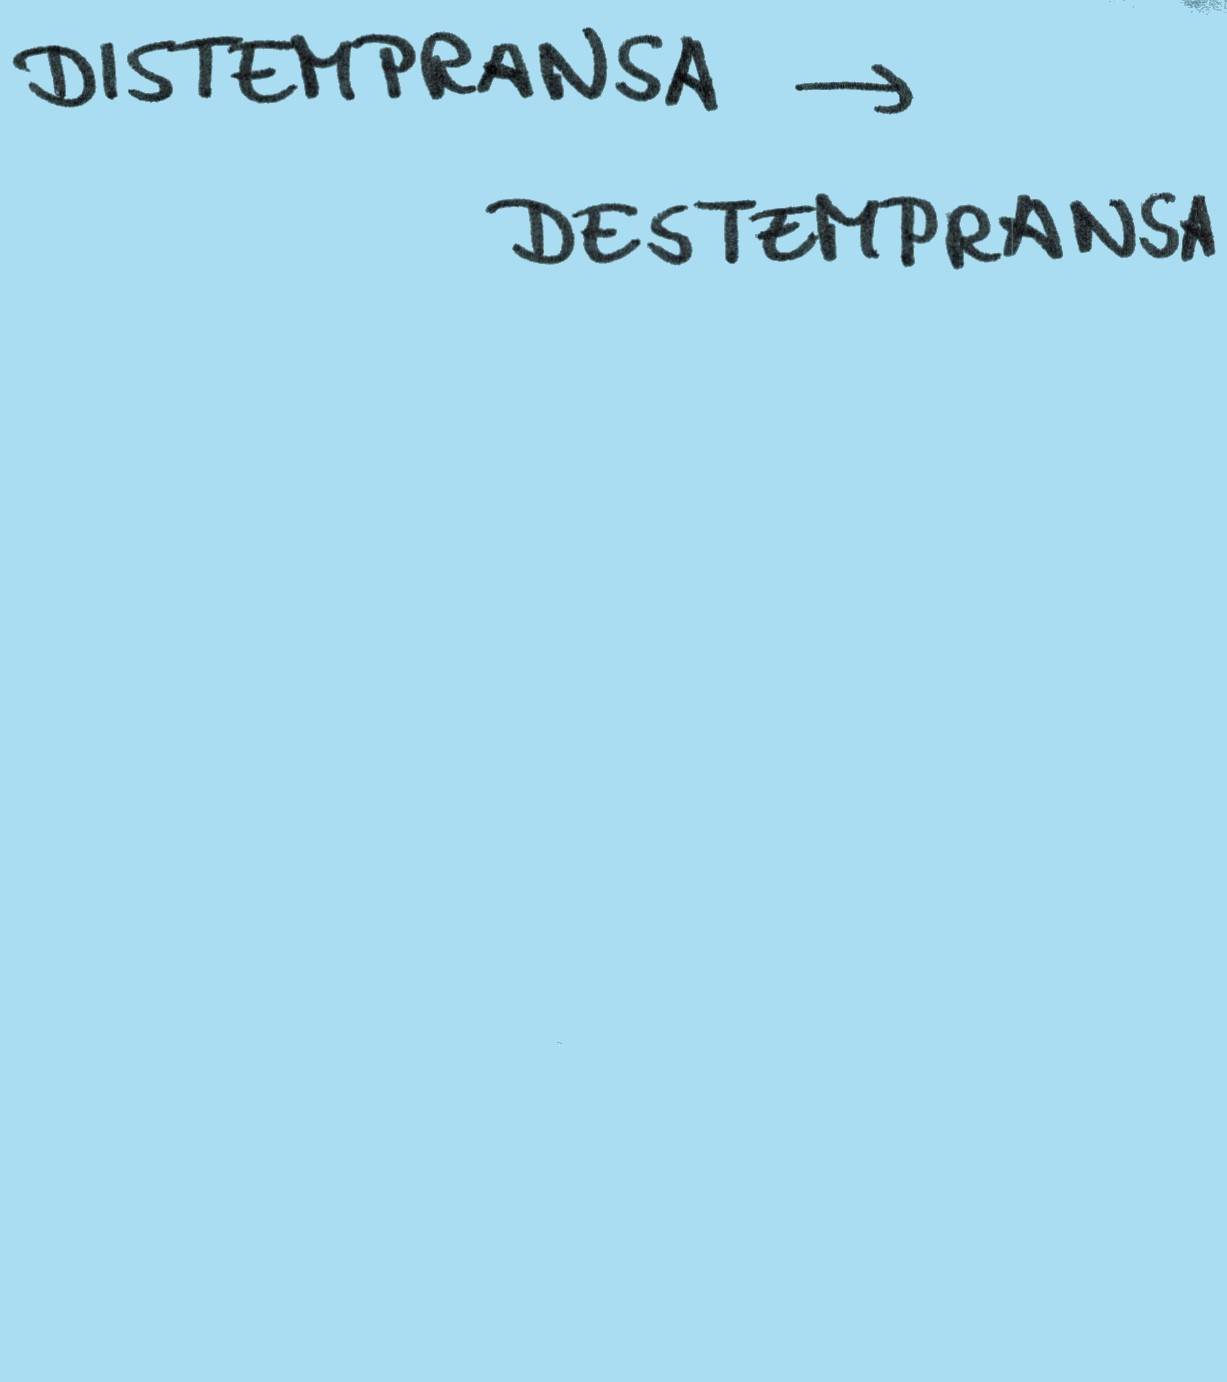 DISTEMPRANSA →
DESTEMPRANSA